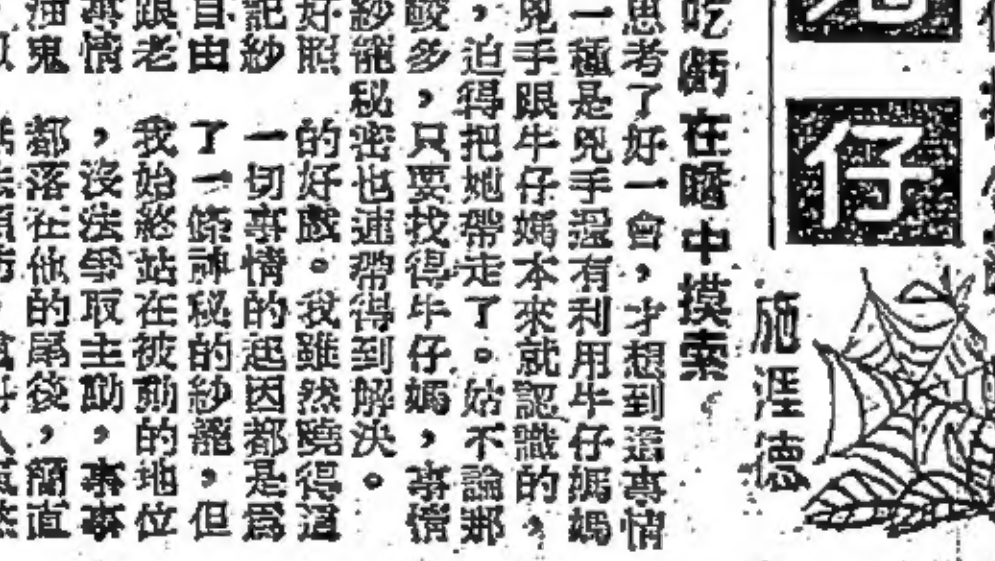 仔
施涯德
吃虧在暗中摸索
思考了好一會，才想到這事情
一種是兇手還有利用牛仔媽媽
兇手眼牛仔媽本來就認識的，
，迫得把她帶走了。姑不論那
酸多，只要找得牛仔媽，事情
紗籠秘密也連帶得到解決。
好照　的好戲。我雖然曉得這
記紗　一切事情的起因都是爲
自由　了一條神秘的紗籠，但
跟老　我始終站在被動的地位
事情　，沒法爭取主動，事事
油鬼　都落在他的尾後，簡直